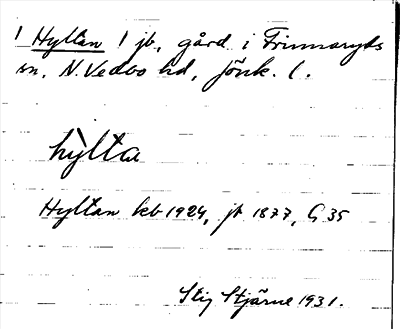 1 Hyltan 1 jb, gård i Frinnaryds
sn, N. Vedbo hd, Jönk. l.
hỳlta
Hyltan kb 1924, jb 1877, G 35
Stig Stjärne 1931.